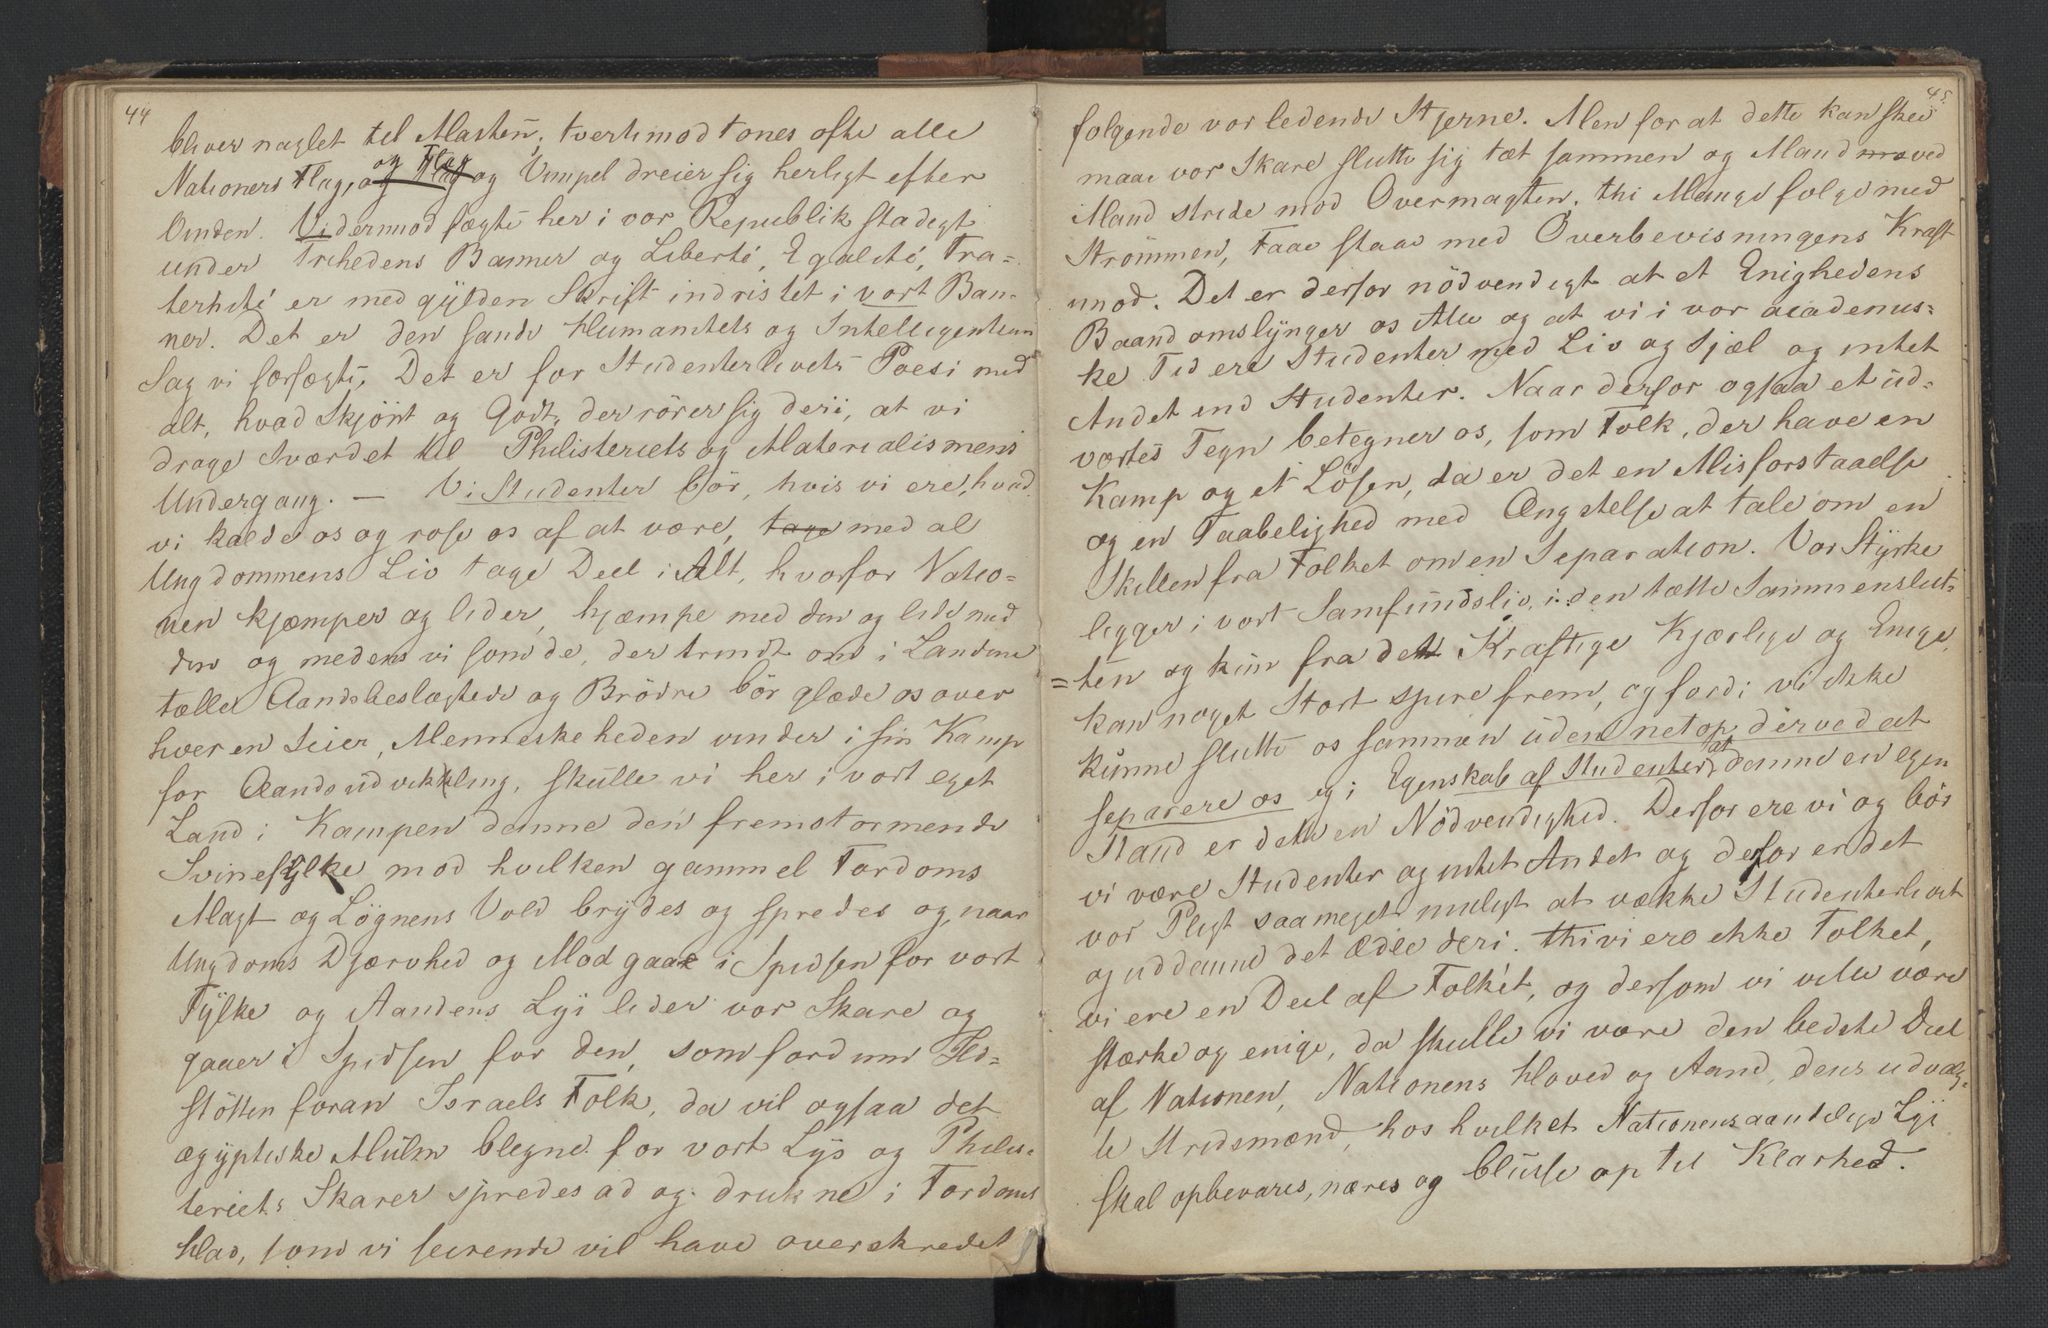 44
bliver naglet til Masten, tvertimod tones ofte alle
Nationers Flag, og Flag og Vimpel dreier sig herligt efter
og Flag
Vinden. Vi derimod fægte her i vor Republik stadigt
under Frihedens Banner og Liberté, Egalité, Fra-
ternité er med gylden Skrift indristet i vort Ban-
ner. Det er den sande Humanitets og Intelligentsens
Sag vi forfægte, Det er for Studenterlivets Poesi med
alt, hvad Skjönt og Godt, der rörer sig deri, at vi
drage Sværdet til Philisteriets og Materialismens
Undergang. — Vi Studenter bör, hvis vi ere, hvad
vi kalde os og rose os af at være, tage med al
Ungdommens Liv tage Deel i Alt, hvorfor Natio-
nen kjæmper og lider, kjæmpe med den og lide med
den og medens vi som de, der trindt om i Landene
tælle Aandsbeslægtede og Brödre bör glæde os over
hver en Seier, Menneskeheden vinder i sin Kamp
for Aandsudvikling, skulle vi her i vort eget
Land i Kampen danne den fremstormende
Svinefylke mod hvilken gammel Fordoms
Magt og Lögnens Vold brydes og spredes og, naar
Ungdoms Djærvhed og Mod gaae i Spidsen for vort
Fylke og Aandens Lys leder vor Skare og
gaaer i Spidsen for den, som fordum Ild-
stötten foran Israels Folk, da vil ogsaa det
ægyptiske Mulm blegne for vort Lys og Philis-
teriets Skarer spredes ad og drukne i Fordoms
Hav, som vi seirende vil have overskredet
45.
folgende vor ledende Stjerne. Men for at dette kan skee
maae vor Skare slutte sig tæt sammen og Mand mo ved
Mand stride mod Overmagten, thi Mange folge med
Strömmen, Faae staae med Overbevisningens Kraft
imod. Det er derfor nödvendigt at et Enighedens
Baand omslynger os Alle og at vi i vor academis-
ke Tid ere Studenter med Liv og Sjæl og intet
Andet end Studenter. Naar derfor ogsaa et ud-
vortes Tegn betegner os, som Folk, der have en
Kamp og et Lösen, da er det en Misforstaaelse
og en Taabelighed med Ængstelse at tale om en
Skillen fra Folket om en Separation. Vor Styrke
ligger i vort Samfundsliv, i den tætte Sammenslut-
=ten og kun fra det Kraftige Kjærlige og Enige,
kan noget Stort spire frem, og fordi vi ikke
kunne slutte os sammen uden netop derved at
separere os og i Egenskab af Studenter at danne en egen
Stand er dette en Nödvendighed. Derfor ere vi og bör
vi være Studenter og intet Andet og derfor er det
vor Pligt saameget muligt at vække Studenterlivet
og uddanne det Ædle deri. Thi vi ere ikke Folket,
vi ere en Deel af Folket, og dersom vi ville være
stærke og enige, da skulle vi være den bedste Deel
af Nationen, Nationens Hoved og Aand, dens udvalg-
te Stridsmænd, hos hvilket Nationens aandelige Lys
skal opbevares, næres og blusse op til Klarhed.